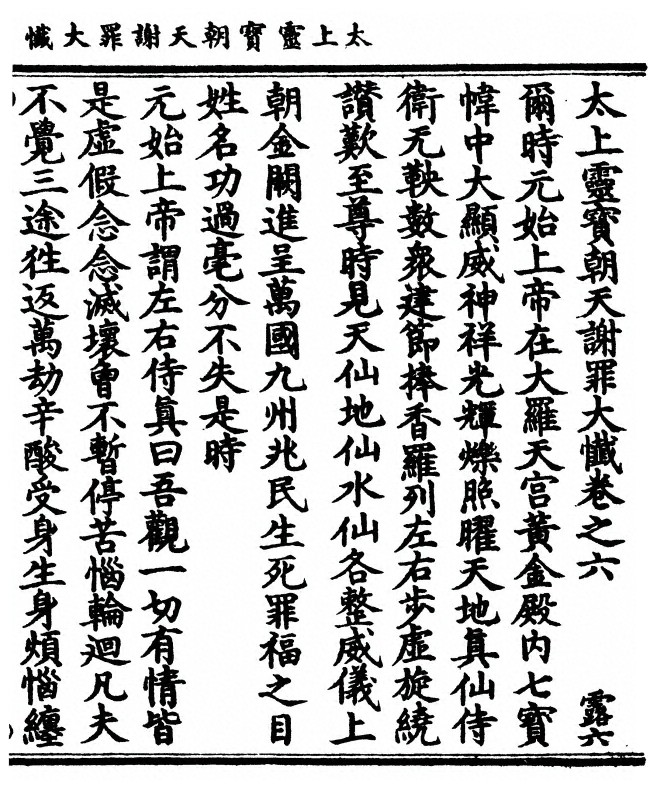 太上靈寶朝天謝罪大懺
太上靈寶朝天謝罪大懺卷之六 露六
爾時元始上帝在大羅天宮黃金殿內七寶
幃中大顯威神祥光輝爍照曜天地真仙侍
衛无鞅數衆建節捧香羅列左右步虛旋繞
讃歎至尊時見天仙地仙水仙各整威儀上
朝金闕進呈萬國九州兆民生死罪福之目
姓名功過毫分不失是時
元始上帝謂左右侍眞曰吾觀一切有情皆
是虛假念念滅壞曾不暫停苦惱輪迴凡夫
不覺三途徃返萬劫辛酸受身生身煩惱纏